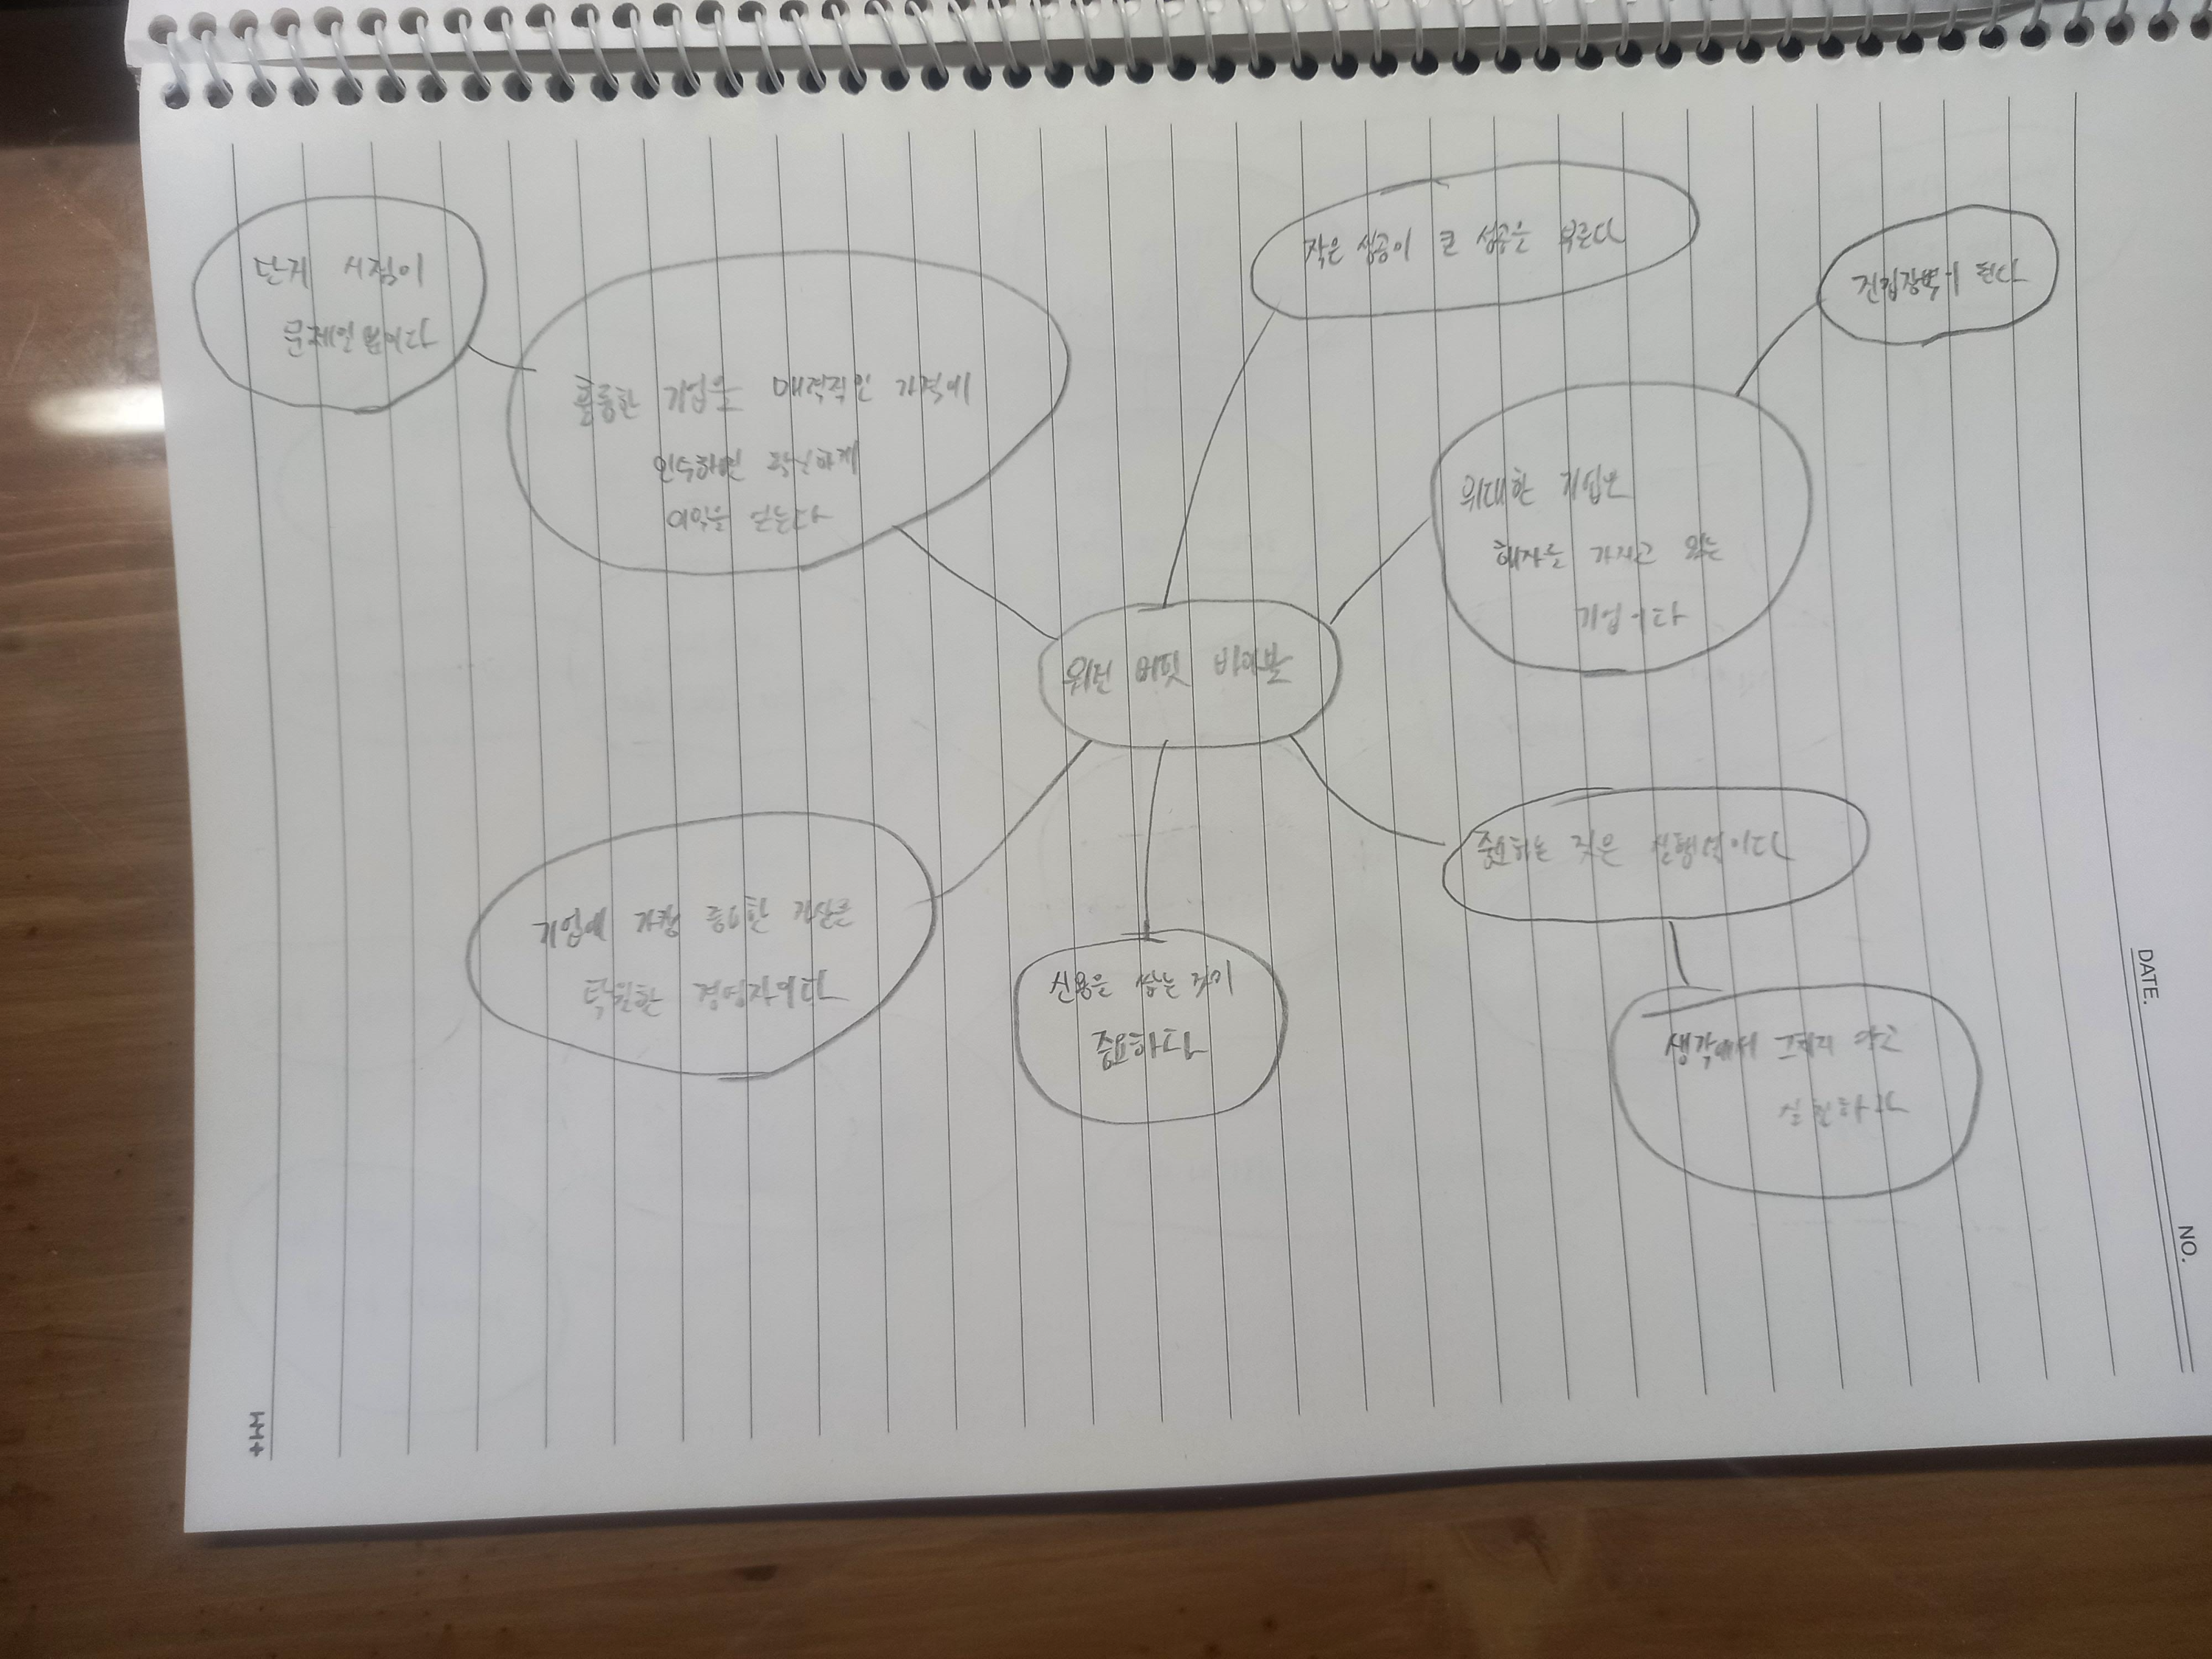 단지 시점이
문제일 뿐이다
훌륭한 기업을 매력적인 가격에
인수하면 확실하게
이익을 얻는다
작은 성공이 큰 성공을 부른다
진입장벽이 된다
위대한 기업은
해자를 가지고 있는
기업이다
워런 버핏 바이블
중요하는 것은 실행력이다
생각에서 그치지 않고
실천하라
신용을 쌓는 것이
중요하다
기업에 가장 중요한 자산은
탁월한 경영자이다
DATE.
NO.